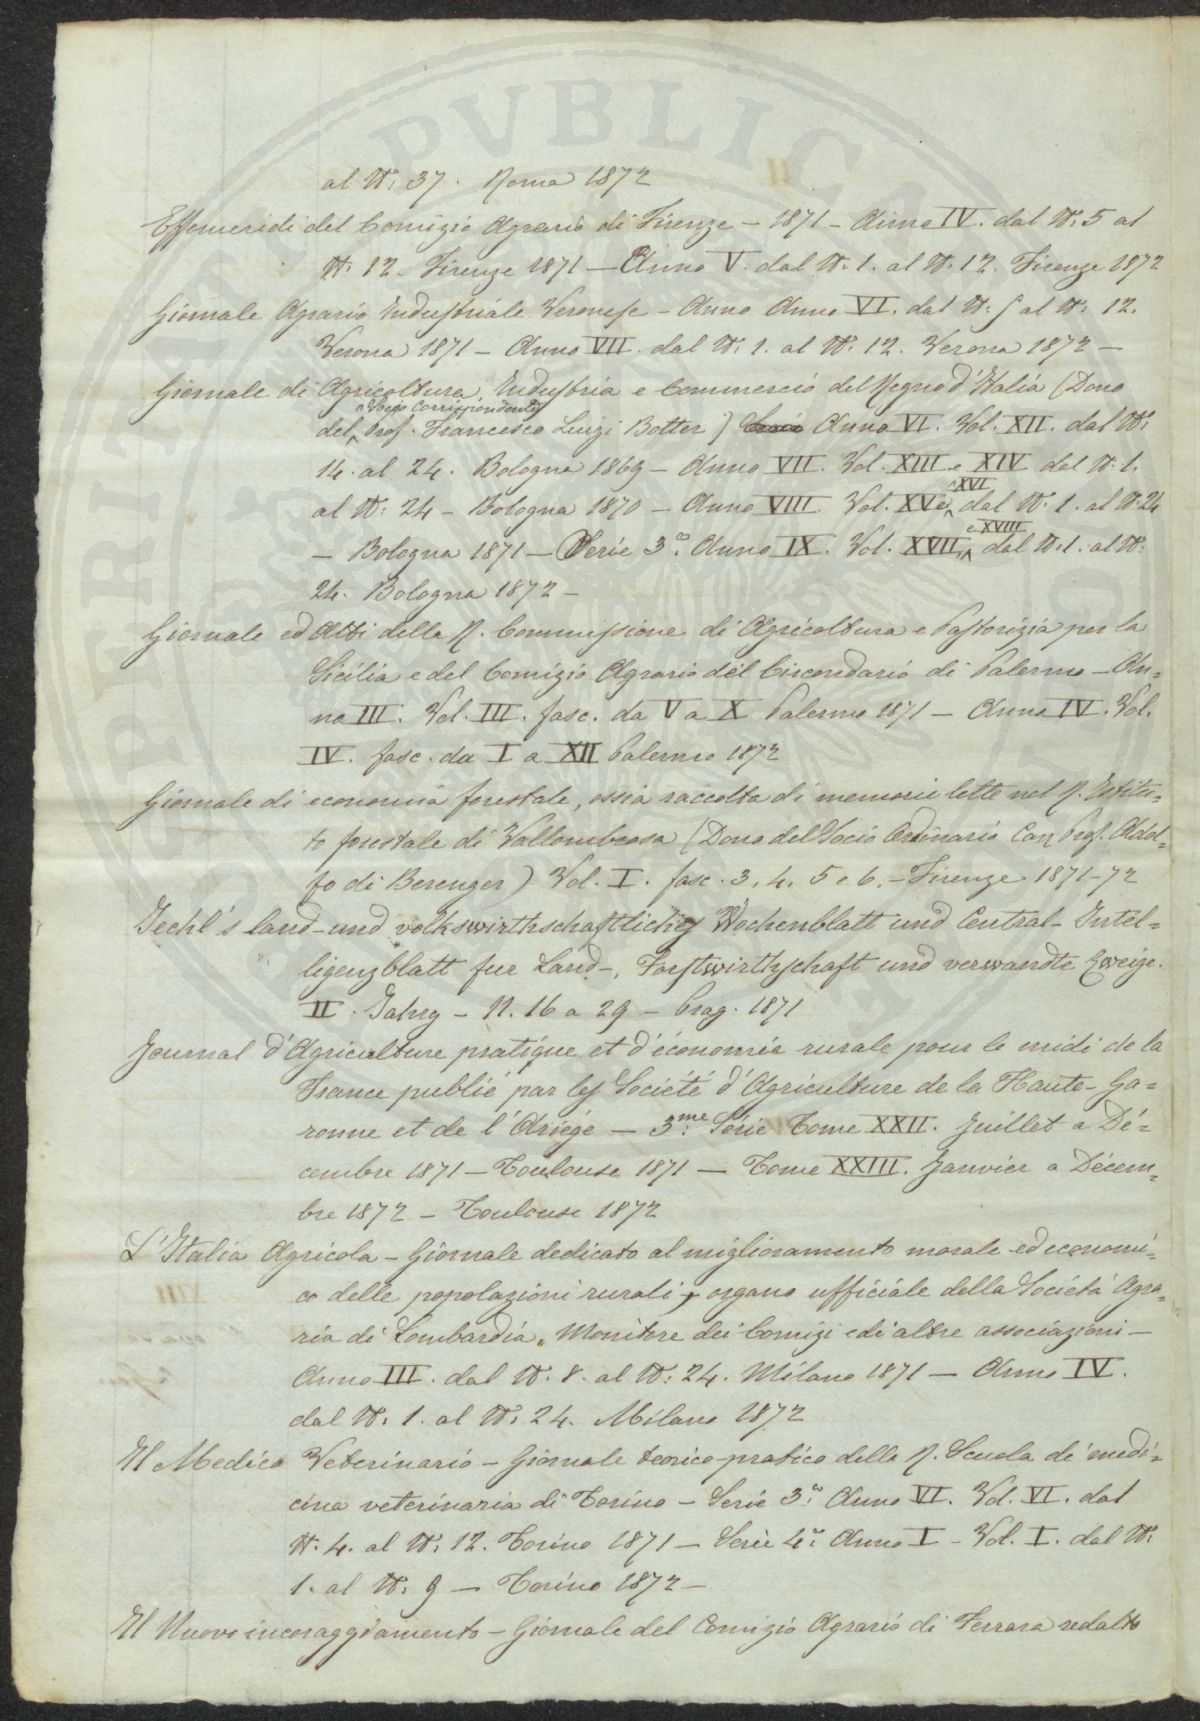 PVBLICAE
al N: 37. Roma 1872
Effemeridi del Comizio Agrario di Firenze - 1871 - Anno IV. dal N: 5 al
N: 12. Firenze 1871 - Anno V. dal N: 1. al N: 12. Firenze 1872
Giornale Agrario Industriale Veronese - Anno Anno VI. dal N: 5 al N: 12.
Verona 1871 - Anno VII. dal N: 1. al N: 12. Verona 1872 -
Giornale di Agricoltura, Industria e Commercio del Regno d'Italia (Dono
Socio corrispondente
del Prof. Francesco Luigi Botter) Serie Anno VI. Vol. XII. dal N:
14. al 24. Bologna 1869 - Anno VII. Vol. XIII e XIV dal N: 1.
XVI
al N: 24 - Bologna 1870 - Anno VIII. Vol. XV e dal N: 1. al N: 24
e XVIII
- Bologna 1871 - Serie 3.a Anno IX. Vol. XVII, dal N: 1. al N:
24. Bologna 1872 -
Giornale ed Atti della R. Commissione di Agricoltura e Pastorizia per la
Sicilia e del Comizio Agrario del Circondario di Palermo - An=
no III. Vol. III. fasc. da V a X Palermo 1871 - Anno IV. Vol.
IV. fasc. da I a XII Palermo 1872
Giornale di economia forestale, ossia raccolta di memorie lette nel R. Istitu=
to forestale di Vallombrosa (Dono del Socio Ordinario Cav. Prof. Adol=
fo di Berenger) Vol. I. fasc. 3, 4, 5 e 6. - Firenze 1871-72
Jechl's land- und volkswirthschaftliches Wochenblatt und Central-Intel=
ligenzblatt fur Land-, Forstwirthschaft und verwandte Zweige.
II. Jahrg - N. 16 a 29 - Prag. 1871
Journal d'Agriculture pratique et d'économie rurale pour le midi de la
France publié par les Société d'Agriculture de la Haute-Ga=
ronne et de l'Ariége - 3.me Série Tome XXII. Juillet a Dé=
cembre 1871 - Toulouse 1871 - Tome XXIII. Janvier a Décem=
bre 1872 - Toulouse 1872
L'Italia Agricola - Giornale dedicato al miglioramento morale ed economi=
co delle popolazioni rurali, organo ufficiale della Società Agra=
ria di Lombardia. Monitore dei Comizi e di altre associazioni -
Anno III. dal N: 8. al N: 24. Milano 1871 - Anno IV.
dal N: 1. al N: 24. Milano 1872
Il Medico Veterinario - Giornale teorico-pratico della R. Scuola di medi=
cina veterinaria di Torino - Serie 3.a Anno VI. Vol. VI. dal
N: 4. al N: 12. Torino 1871 - Serie 4.a Anno I - Vol. I. dal N:
1. al N: 9 - Torino 1872 -
Il Nuovo incoraggiamento - Giornale del Comizio Agrario di Ferrara redatto